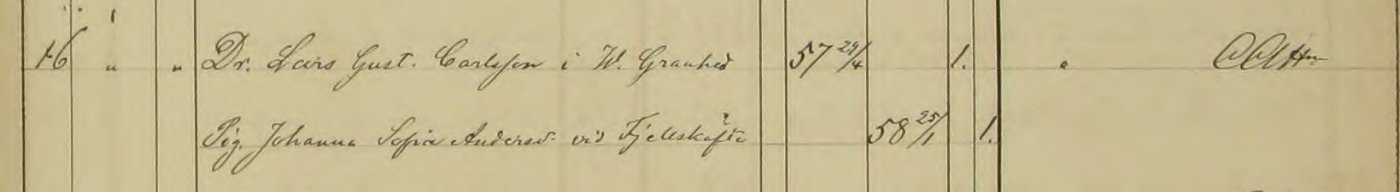 16 " " Dr. Lars Gust. Carlsson i W. Granhed 57 29/4 1. "
Pig. Johanna Sofia Andersd. vid Fjellskäfte 58 25/1 1.